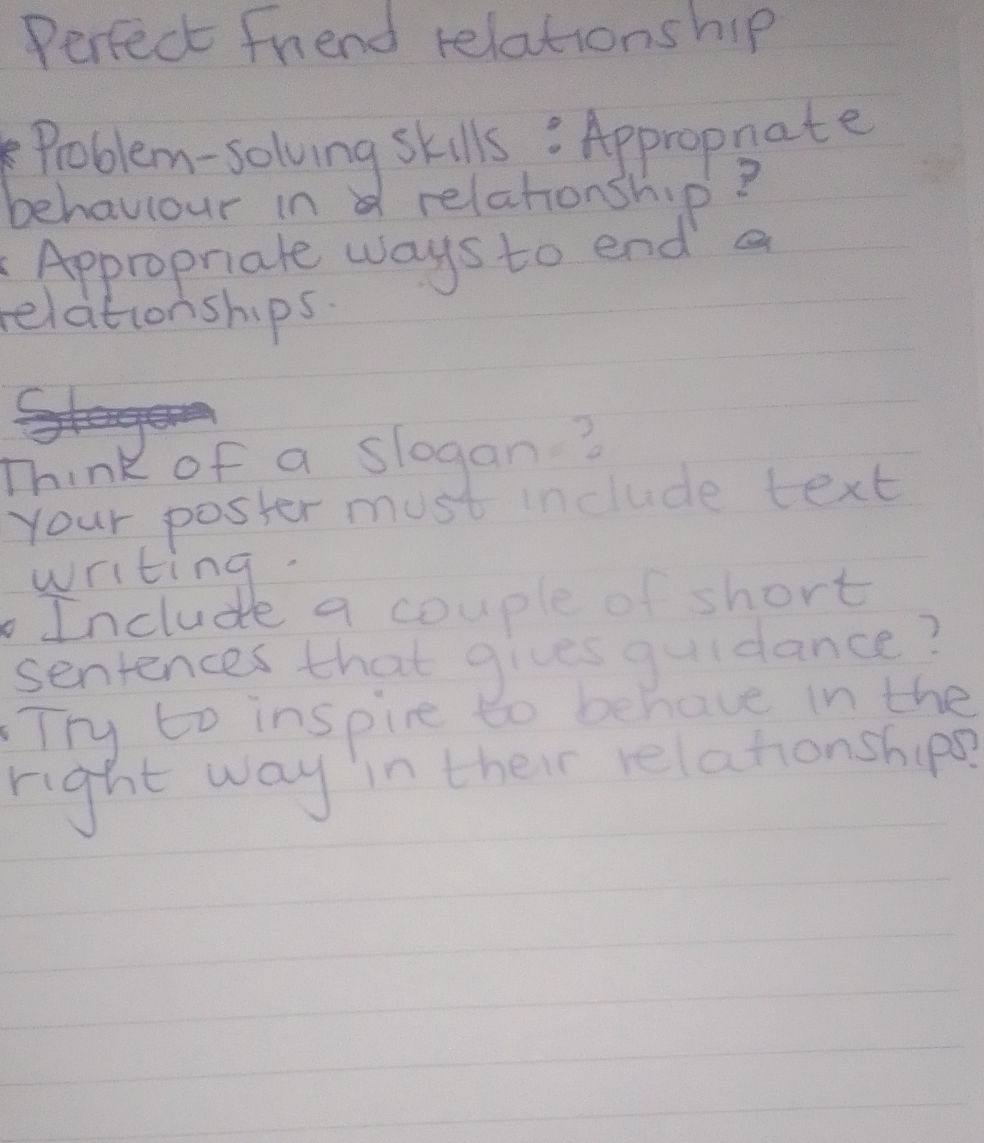 Perfect friend relationship
* Problem-solving skills : Appropriate
behaviour in a relationship?
• Appropriate ways to end a
relationships.
Slogan
Think of a slogan?
Your poster must include text
writing.
• Include a couple of short
sentences that gives guidance?
• Try to inspire to behave in the
right way in their relationships?